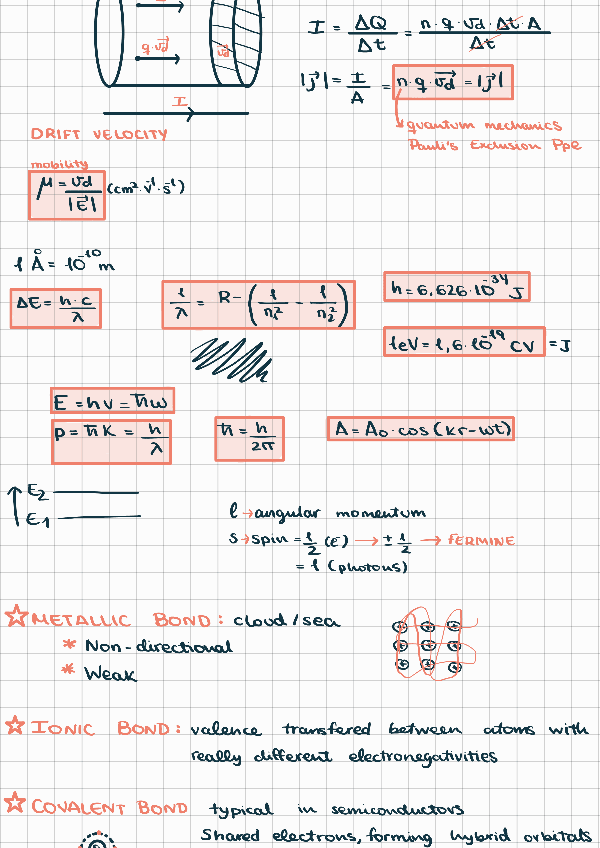 q·vd
vd
I
I = ΔQ/Δt = n·q·vd·Δt·A/Δt
|j⃗| = I/A = n·q·v⃗d = |j⃗|
quantum mechanics
Pauli's Exclusion Ppe
DRIFT VELOCITY
mobility
μ = vd/|E⃗| (cm²·v⁻¹·s⁻¹)
1 Å = 10⁻¹⁰ m
ΔE = h·c/λ
1/λ = R-(1/n₁² - 1/n₂²)
h = 6,626·10⁻³⁴ J
1eV = 1,6·10⁻¹⁹ CV = J
E = hν = ħω
p = ħK = h/λ
ħ = h/2π
A = A₀·cos(kr-wt)
E₂
E₁
l → angular momentum
s → spin = 1/2 (e) → ± 1/2 → FERMINE
= 1 (photons)
METALLIC BOND: cloud/sea
* Non-directional
* Weak
IONIC BOND: valence transfered between atoms with
really different electronegativities
COVALENT BOND typical in semiconductors
Shared electrons, forming hybrid orbitals